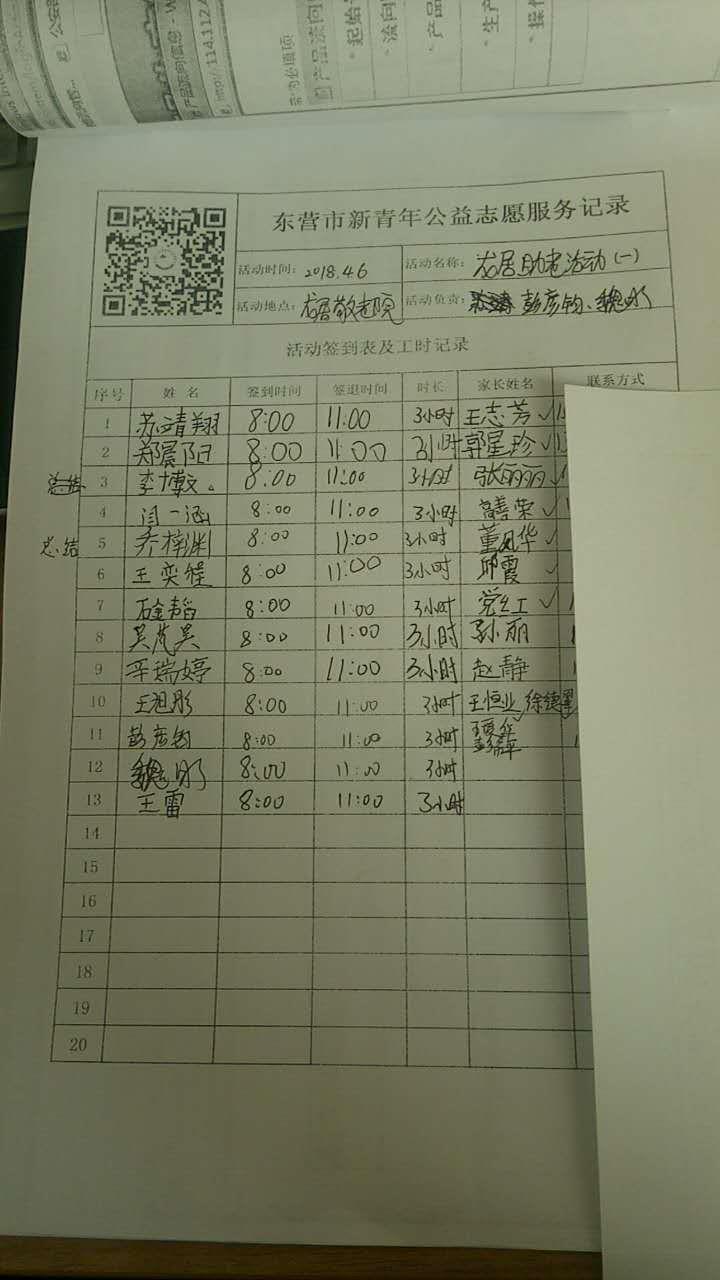 产品流向信息 - W
http://114.112.
带*为必填项
产品流向
* 起始
* 流向
* 产品
* 生产
* 操作
东营市新青年公益志愿服务记录
活动时间: 2018.4.6 活动名称: 龙居助老活动(一)
活动地点: 龙居敬老院 活动负责: 彭彦钧、魏明
活动签到表及工时记录
序号 姓 名 签到时间 签退时间 时长 家长姓名 联系方式
1 苏靖翔 8:00 11:00 3小时 王志芳 ✓
2 郑晨阳 8:00 11:00 3小时 郭星珍 ✓
总结 3 李博文 8:00 11:00 3小时 张丽丽 ✓
4 闫一涵 8:00 11:00 3小时 荣 ✓
总结 5 乔梓渊 8:00 11:00 3小时 董凤华 ✓
6 王奕 8:00 11:00 3小时 邱霞 ✓
7 8:00 11:00 3小时 党红 ✓
8 吴 昊 8:00 11:00 3小时 孙丽
9 辛瑞婷 8:00 11:00 3小时 赵静
10 王旭彤 8:00 11:00 3小时 王恒业 徐德翠
11 彭彦钧 8:00 11:00 3小时
12 魏明 8:00 11:00 3小时
13 王雷 8:00 11:00 3小时
14
15
16
17
18
19
20